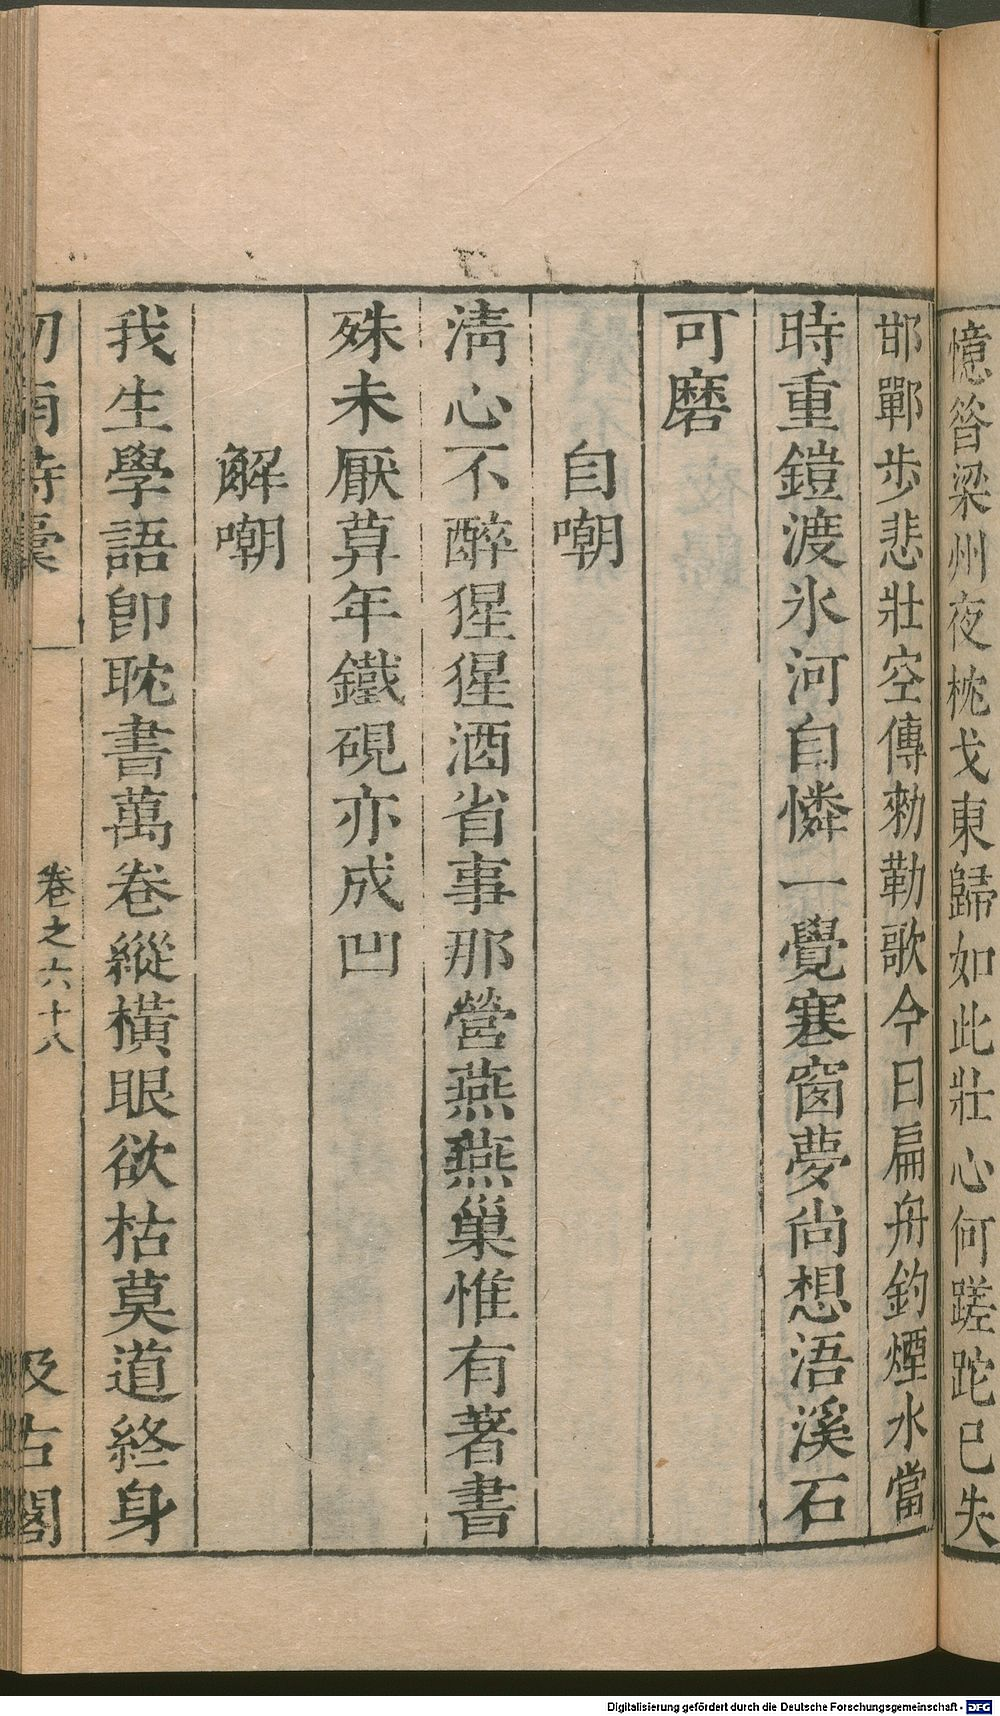 憶昝梁州夜枕戈東歸如此壯心何蹉跎已失
邯鄲步悲壯空傳勑勒歌今日扁舟釣煙水當
時重鎧渡氷河自憐一覺寒窗夢尚想浯溪石
可磨
自嘲
淸心不醉猩猩酒省事那營燕燕巢惟有著書
殊未厭萛年鐵硯亦成凹
解嘲
我生學語卽耽書萬卷縱橫眼欲枯莫道終身
劒南詩稾
卷之六十八
汲古閣
Digitalisierung gefördert durch die Deutsche Forschungsgemeinschaft - DFG